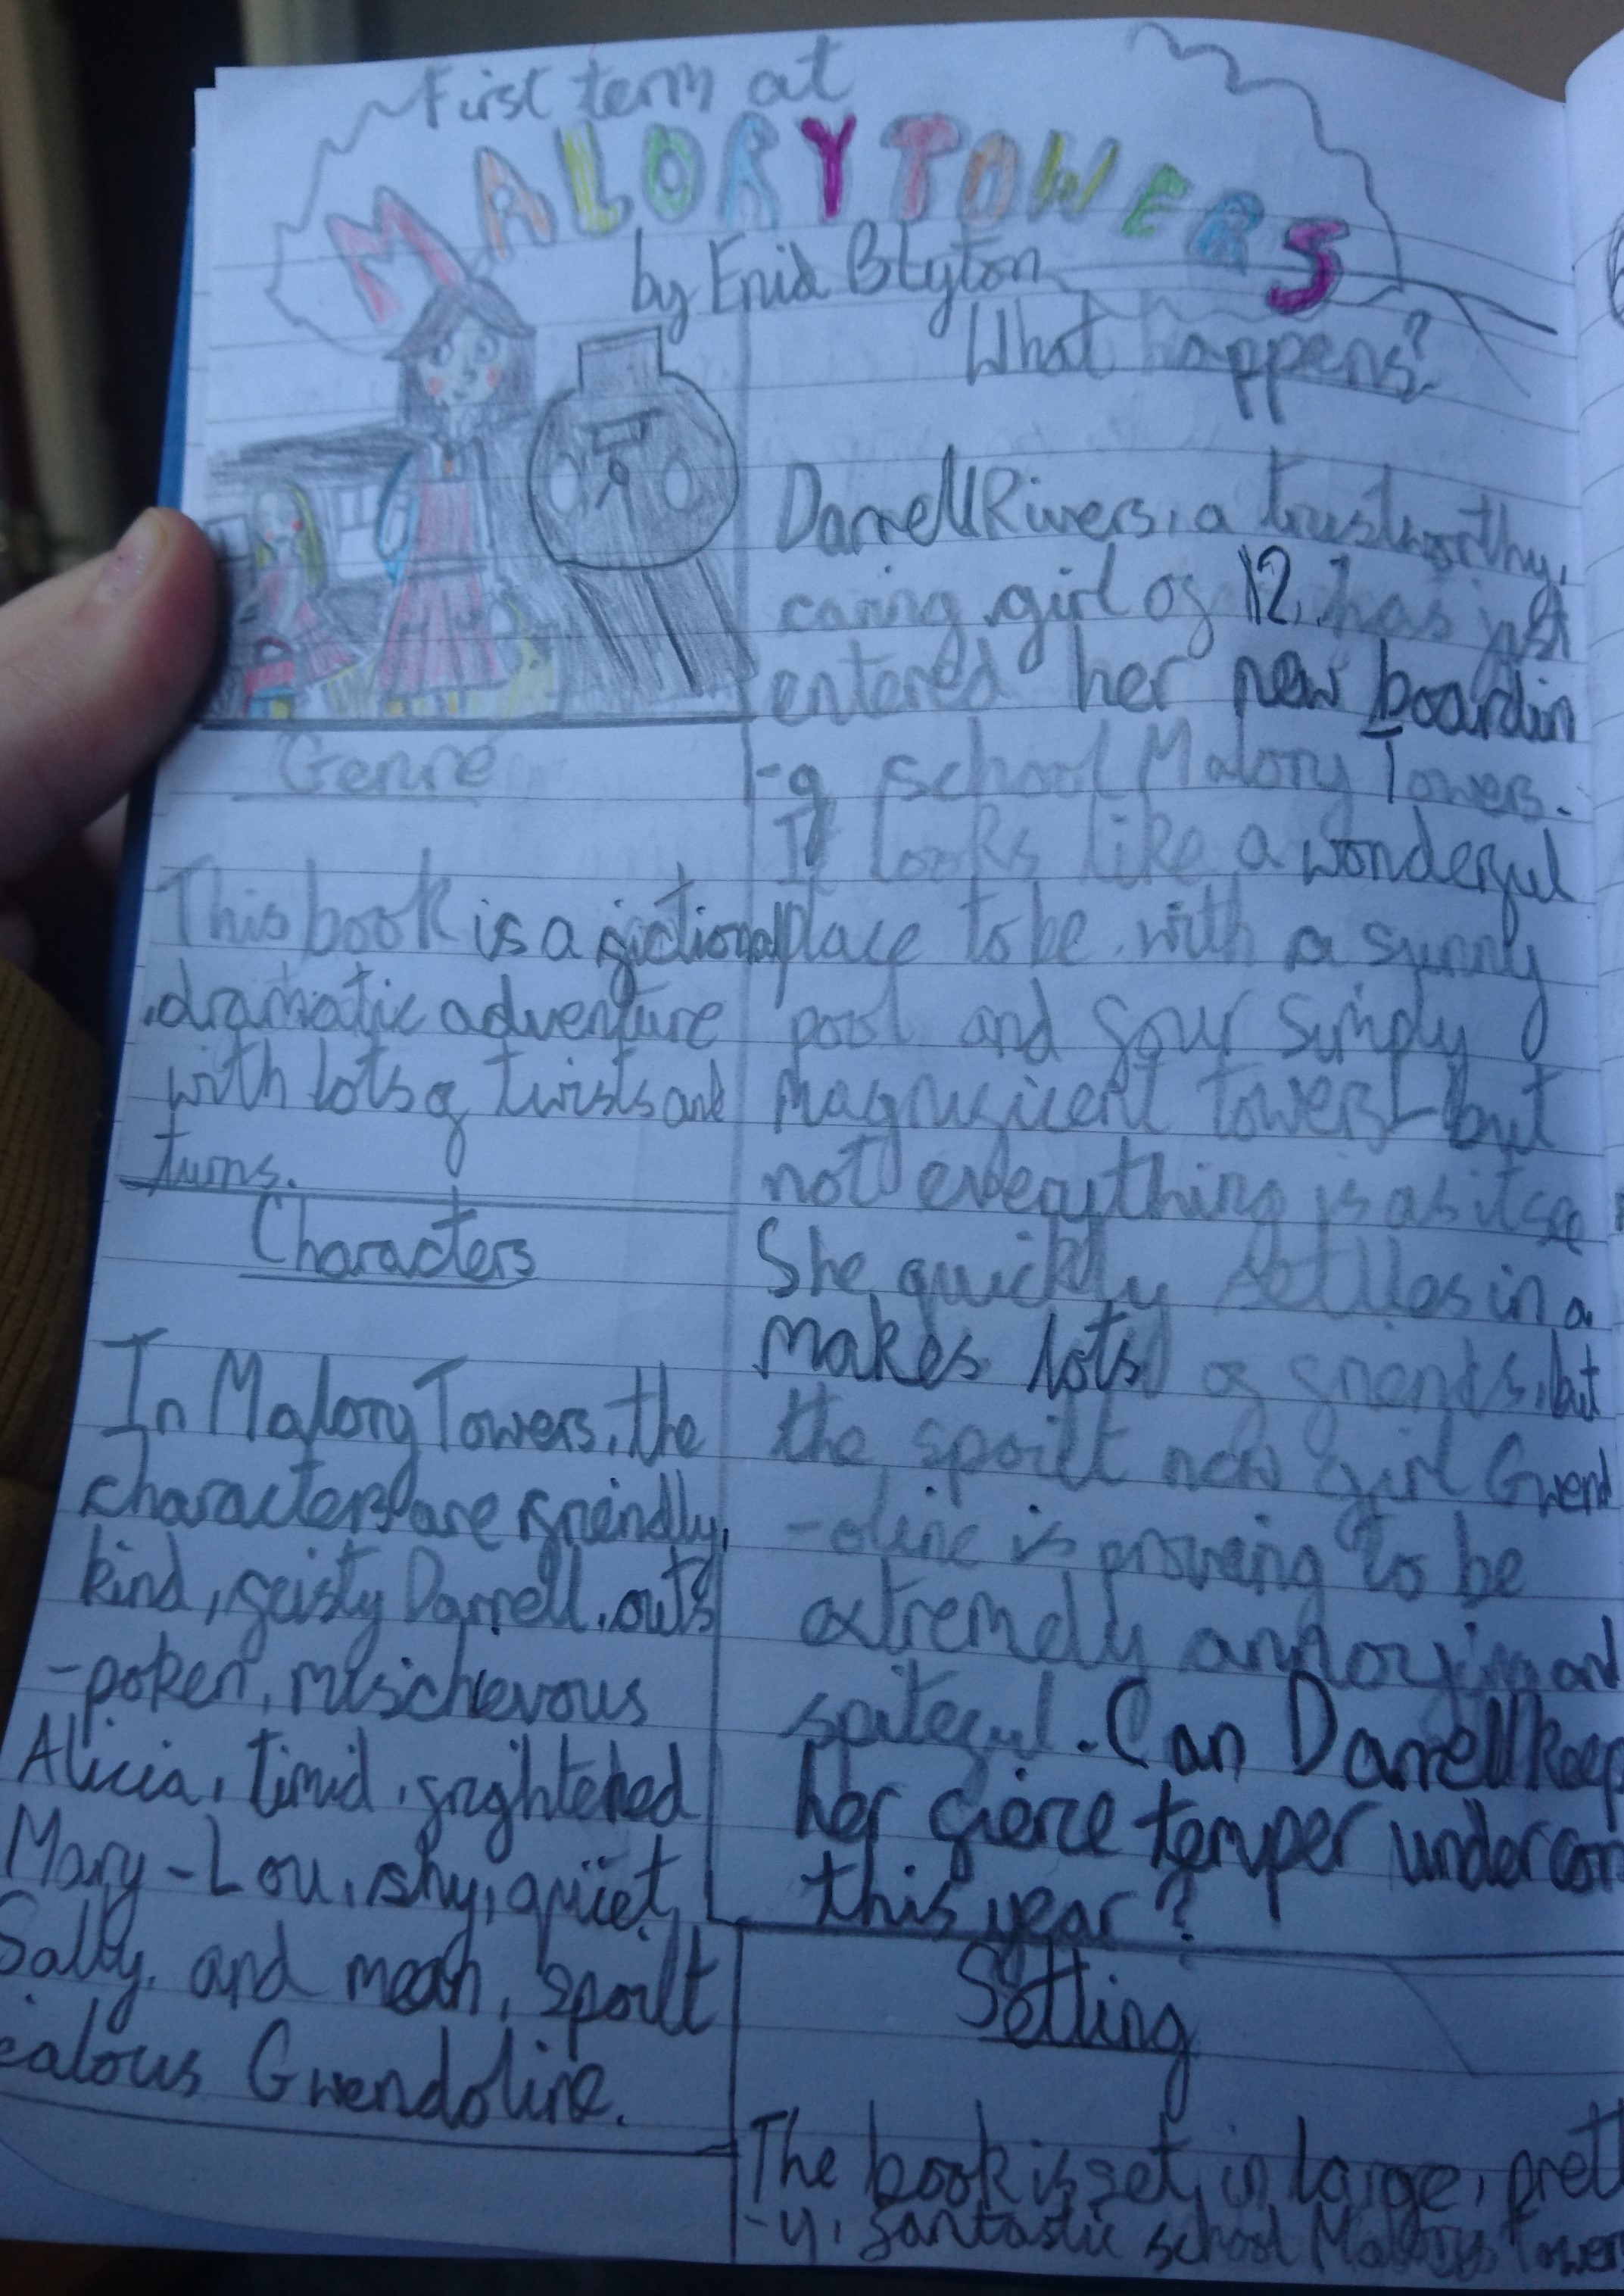 First term at
MALORY TOWERS
by Enid Blyton
Genre
This book is a fictional
, dramatic adventure
with lots of twists and
turns.
Characters
In Malory Towers, the
characters are friendly,
kind, feisty Darrell, outs
-poken, mischievous
Alicia, timid, frightened
Mary-Lou, shy, quiet,
Sally, and mean, spoilt
ealous Gwendoline.
What happens?
Darrell Rivers, a trustworthy,
caring girl of 12, has just
entered her new boardin
-g school Malory Towers.
It looks like a wonderful
place to be, with a sunny
pool and four simply
magnificent towers - but
not everything is as it see
She quickly settles in a
makes lots of friends, but
the spoilt new girl Gwend
-oline is proving to be
extremely annoying and
spiteful. Can Darrell keep
her fierce temper under con
this year?
Setting
The book is set in large, prett
-y, fantastic school Malory Tower